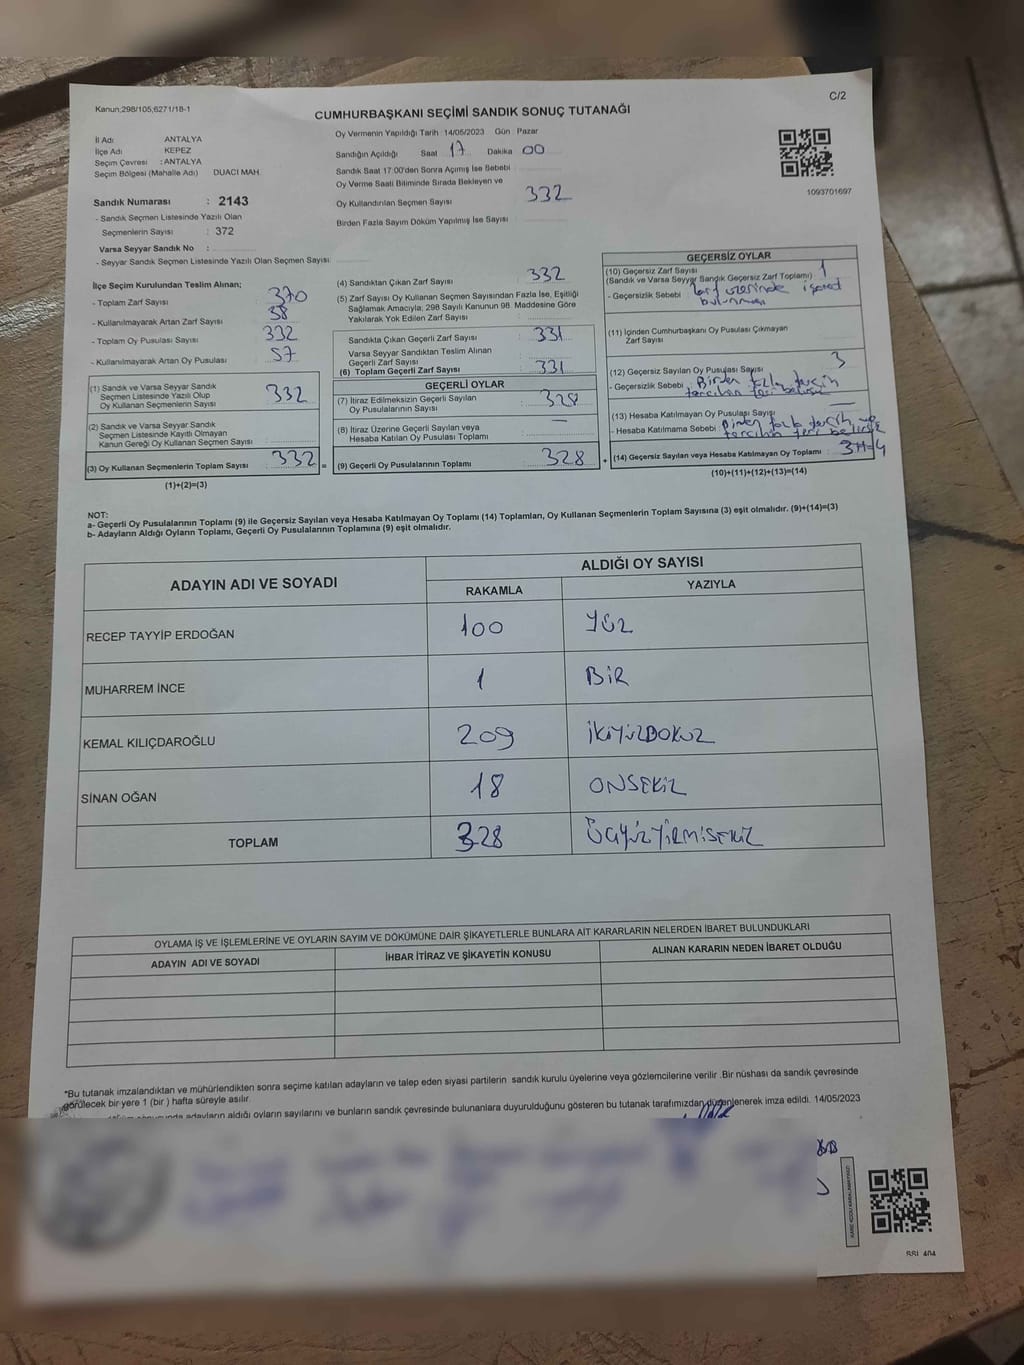 Kanun;298/105;6271/18-1
C/2
CUMHURBAŞKANI SEÇİMİ SANDIK SONUÇ TUTANAĞI
İl Adı ANTALYA
İlçe Adı KEPEZ
Seçim Çevresi : ANTALYA
Seçim Bölgesi (Mahalle Adı) DUACI MAH.
Oy Vermenin Yapıldığı Tarih : 14/05/2023 Gün : Pazar
Sandığın Açıldığı Saat 17 Dakika 00
Sandık Saat 17:00'den Sonra Açımış İse Sebebi
Oy Verme Saati Bitiminde Sırada Bekleyen ve
Oy Kullandırılan Seçmen Sayısı 332
Birden Fazla Sayım Döküm Yapılmış İse Sayısı
1093701697
Sandık Numarası : 2143
- Sandık Seçmen Listesinde Yazılı Olan
Seçmenlerin Sayısı : 372
Varsa Seyyar Sandık No :
- Seyyar Sandık Seçmen Listesinde Yazılı Olan Seçmen Sayısı:
İlçe Seçim Kurulundan Teslim Alınan;
- Toplam Zarf Sayısı 370
- Kullanılmayarak Artan Zarf Sayısı 38
- Toplam Oy Pusulası Sayısı 332
- Kullanılmayarak Artan Oy Pusulası 57
(1) Sandık ve Varsa Seyyar Sandık
Seçmen Listesinde Yazılı Olup
Oy Kullanan Seçmenlerin Sayısı 332
(2) Sandık ve Varsa Seyyar Sandık
Seçmen Listesinde Kayıtlı Olmayan
Kanun Gereği Oy Kullanan Seçmen Sayısı :
(3) Oy Kullanan Seçmenlerin Toplam Sayısı 332 =
(1)+(2)=(3)
(4) Sandıktan Çıkan Zarf Sayısı 332
(5) Zarf Sayısı Oy Kullanan Seçmen Sayısından Fazla İse, Eşitliği
Sağlamak Amacıyla; 298 Sayılı Kanunun 98. Maddesine Göre
Yakılarak Yok Edilen Zarf Sayısı :
Sandıkta Çıkan Geçerli Zarf Sayısı : 331
Varsa Seyyar Sandıktan Teslim Alınan
Geçerli Zarf Sayısı
(6) Toplam Geçerli Zarf Sayısı : 331
GEÇERLİ OYLAR
(7) İtiraz Edilmeksizin Geçerli Sayılan
Oy Pusulalarının Sayısı : 328
(8) İtiraz Üzerine Geçerli Sayılan veya
Hesaba Katılan Oy Pusulası Toplamı : —
(9) Geçerli Oy Pusulalarının Toplamı : 328 +
GEÇERSİZ OYLAR
(10) Geçersiz Zarf Sayısı 1
(Sandık ve Varsa Seyyar Sandık Geçersiz Zarf Toplamı)
- Geçersizlik Sebebi zarf üzerinde işaret
bulunması
(11) İçinden Cumhurbaşkanı Oy Pusulası Çıkmayan
Zarf Sayısı
(12) Geçersiz Sayılan Oy Pusulası Sayısı 3
- Geçersizlik Sebebi Birden fazla
(13) Hesaba Katılmayan Oy Pusulası Sayısı —
- Hesaba Katılmama Sebebi : Birden fazla
(14) Geçersiz Sayılan veya Hesaba Katılmayan Oy Toplamı : 3+1=4
(10)+(11)+(12)+(13)=(14)
NOT:
a- Geçerli Oy Pusulalarının Toplamı (9) ile Geçersiz Sayılan veya Hesaba Katılmayan Oy Toplamı (14) Toplamları, Oy Kullanan Seçmenlerin Toplam Sayısına (3) eşit olmalıdır. (9)+(14)=(3)
b- Adayların Aldığı Oyların Toplamı, Geçerli Oy Pusulalarının Toplamına (9) eşit olmalıdır.
ADAYIN ADI VE SOYADI ALDIĞI OY SAYISI
RAKAMLA YAZIYLA
RECEP TAYYİP ERDOĞAN 100 YÜZ
MUHARREM İNCE 1 BİR
KEMAL KILIÇDAROĞLU 209 İKİYÜZDOKUZ
SİNAN OĞAN 18 ONSEKİZ
TOPLAM 328 ÜÇYÜZYİRMİSEKİZ
OYLAMA İŞ VE İŞLEMLERİNE VE OYLARIN SAYIM VE DÖKÜMÜNE DAİR ŞİKAYETLERLE BUNLARA AİT KARARLARIN NELERDEN İBARET BULUNDUKLARI
ADAYIN ADI VE SOYADI İHBAR İTİRAZ VE ŞİKAYETİN KONUSU ALINAN KARARIN NEDEN İBARET OLDUĞU
*Bu tutanak imzalandıktan ve mühürlendikten sonra seçime katılan adayların ve talep eden siyasi partilerin sandık kurulu üyelerine veya gözlemcilerine verilir .Bir nüshası da sandık çevresinde
görülecek bir yere 1 (bir ) hafta süreyle asılır.
adayların aldığı oyların sayılarını ve bunların sandık çevresinde bulunanlara duyurulduğunu gösteren bu tutanak tarafımızdan düzenlenerek imza edildi. 14/05/2023